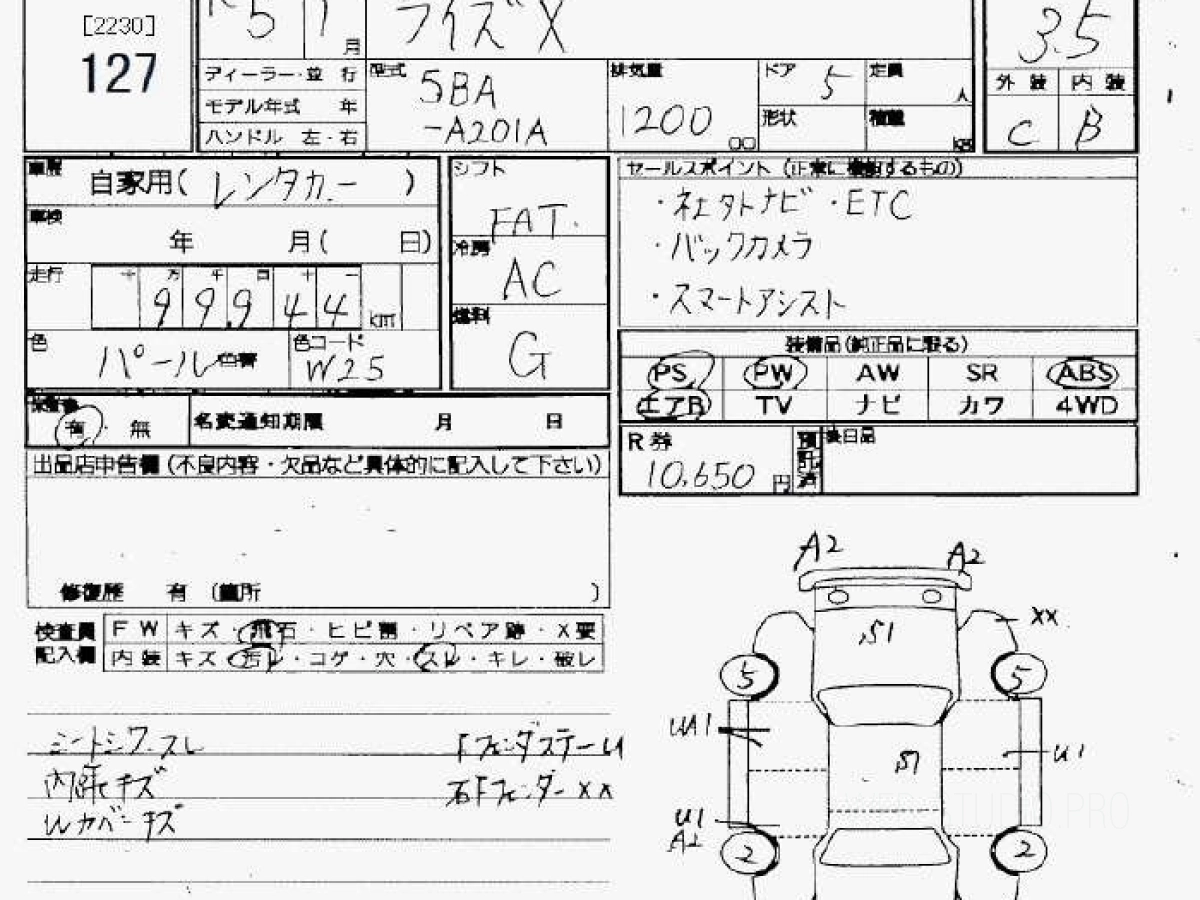 [2230]
127
5 月
ライズ X
3.5
ディーラー・並 行
モデル年式 年
ハンドル 左・右
型式 5BA
-A201A
排気量 1200 cc
ドア 5
定員 人
形状
積載 kg
外装 内装
C B
車歴 自家用( レンタカー )
車検 年 月( 日)
走行 十 万 千 百 十 一
99,944 km
色 パール 色替
色コード W25
シフト FAT
冷房 AC
燃料 G
セールスポイント (正常に機能するもの)
・ネェタトナビ・ETC
・バックカメラ
・スマートアシスト
装備品(純正品に限る)
PS PW AW SR ABS
エアB TV ナビ カワ 4WD
保証書 有・無
名変通知期限 月 日
R券 10,650 円
預託済
後日品
出品店申告欄 (不良内容・欠品など具体的に記入して下さい)
修復歴 有 (箇所 )
検査員記入欄
FW キズ・飛石・ヒビ割・リペア跡・X要
内装 キズ・汚レ・コゲ・穴・スレ・キレ・破レ
シートシワ.スレ
内張キズ
Wカバーキズ
FフェンダステーU
右Fフェンダー XX
A2 A2
XX
S1
5 5
UA1
S1
U1
U1
A2
2 2